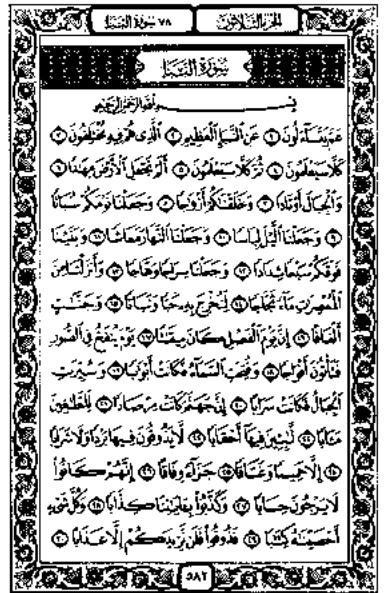 الجزء الثلاثون
٧٨ سورة النبأ
سورة النبأ
بسم الله الرحمن الرحيم
عَمَّ يَتَسَآءَلُونَ ١ عَنِ ٱلنَّبَإِ ٱلْعَظِيمِ ٢ ٱلَّذِى هُمْ فِيهِ مُخْتَلِفُونَ ٣
كَلَّا سَيَعْلَمُونَ ٤ ثُمَّ كَلَّا سَيَعْلَمُونَ ٥ أَلَمْ نَجْعَلِ ٱلْأَرْضَ مِهَٰدًا ٦
وَٱلْجِبَالَ أَوْتَادًا ٧ وَخَلَقْنَٰكُمْ أَزْوَٰجًا ٨ وَجَعَلْنَا نَوْمَكُمْ سُبَاتًا
٩ وَجَعَلْنَا ٱلَّيْلَ لِبَاسًا ١٠ وَجَعَلْنَا ٱلنَّهَارَ مَعَاشًا ١١ وَبَنَيْنَا
فَوْقَكُمْ سَبْعًا شِدَادًا ١٢ وَجَعَلْنَا سِرَاجًا وَهَّاجًا ١٣ وَأَنزَلْنَا مِنَ
ٱلْمُعْصِرَٰتِ مَآءً ثَجَّاجًا ١٤ لِّنُخْرِجَ بِهِۦ حَبًّا وَنَبَاتًا ١٥ وَجَنَّٰتٍ
أَلْفَافًا ١٦ إِنَّ يَوْمَ ٱلْفَصْلِ كَانَ مِيقَٰتًا ١٧ يَوْمَ يُنفَخُ فِى ٱلصُّورِ
فَتَأْتُونَ أَفْوَاجًا ١٨ وَفُتِحَتِ ٱلسَّمَآءُ فَكَانَتْ أَبْوَٰبًا ١٩ وَسُيِّرَتِ
ٱلْجِبَالُ فَكَانَتْ سَرَابًا ٢٠ إِنَّ جَهَنَّمَ كَانَتْ مِرْصَادًا ٢١ لِّلطَّٰغِينَ
مَـَٔابًا ٢٢ لَّٰبِثِينَ فِيهَآ أَحْقَابًا ٢٣ لَّا يَذُوقُونَ فِيهَا بَرْدًا وَلَا شَرَابًا
٢٤ إِلَّا حَمِيمًا وَغَسَّاقًا ٢٥ جَزَآءً وِفَاقًا ٢٦ إِنَّهُمْ كَانُوا۟
لَا يَرْجُونَ حِسَابًا ٢٧ وَكَذَّبُوا۟ بِـَٔايَٰتِنَا كِذَّابًا ٢٨ وَكُلَّ شَىْءٍ
أَحْصَيْنَٰهُ كِتَٰبًا ٢٩ فَذُوقُوا۟ فَلَن نَّزِيدَكُمْ إِلَّا عَذَابًا ٣٠
٥٨٢